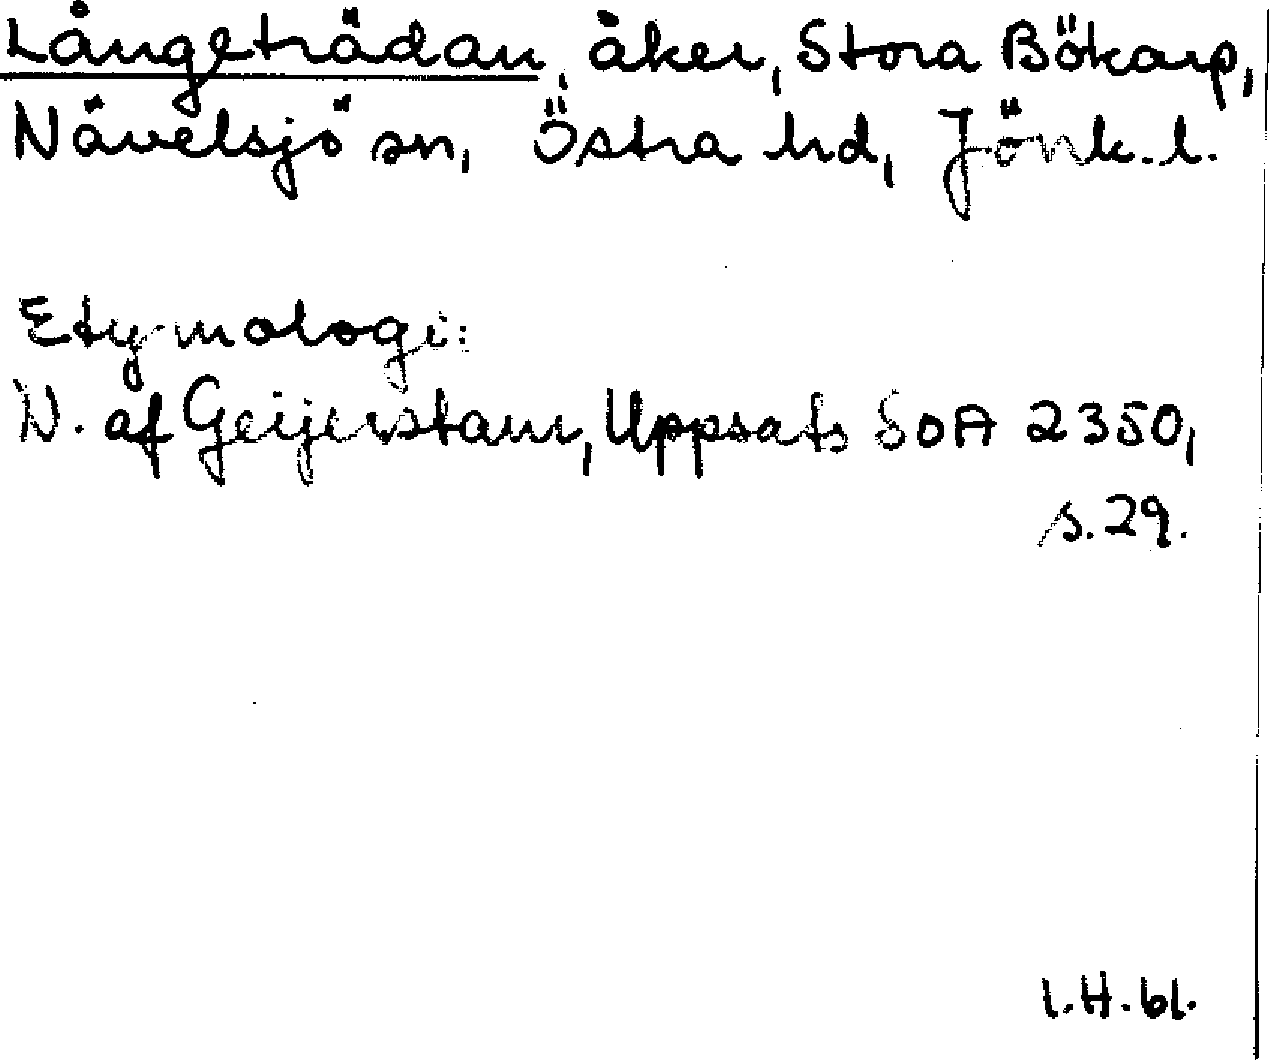 Långeträdan, åker, Stora Bökarp,
Nävelsjö sn, Östra hd, Jönk. l.
Etymologi:
N. af Geijerstam, Uppsats SOA 2350,
s. 29.
I.H. 61.